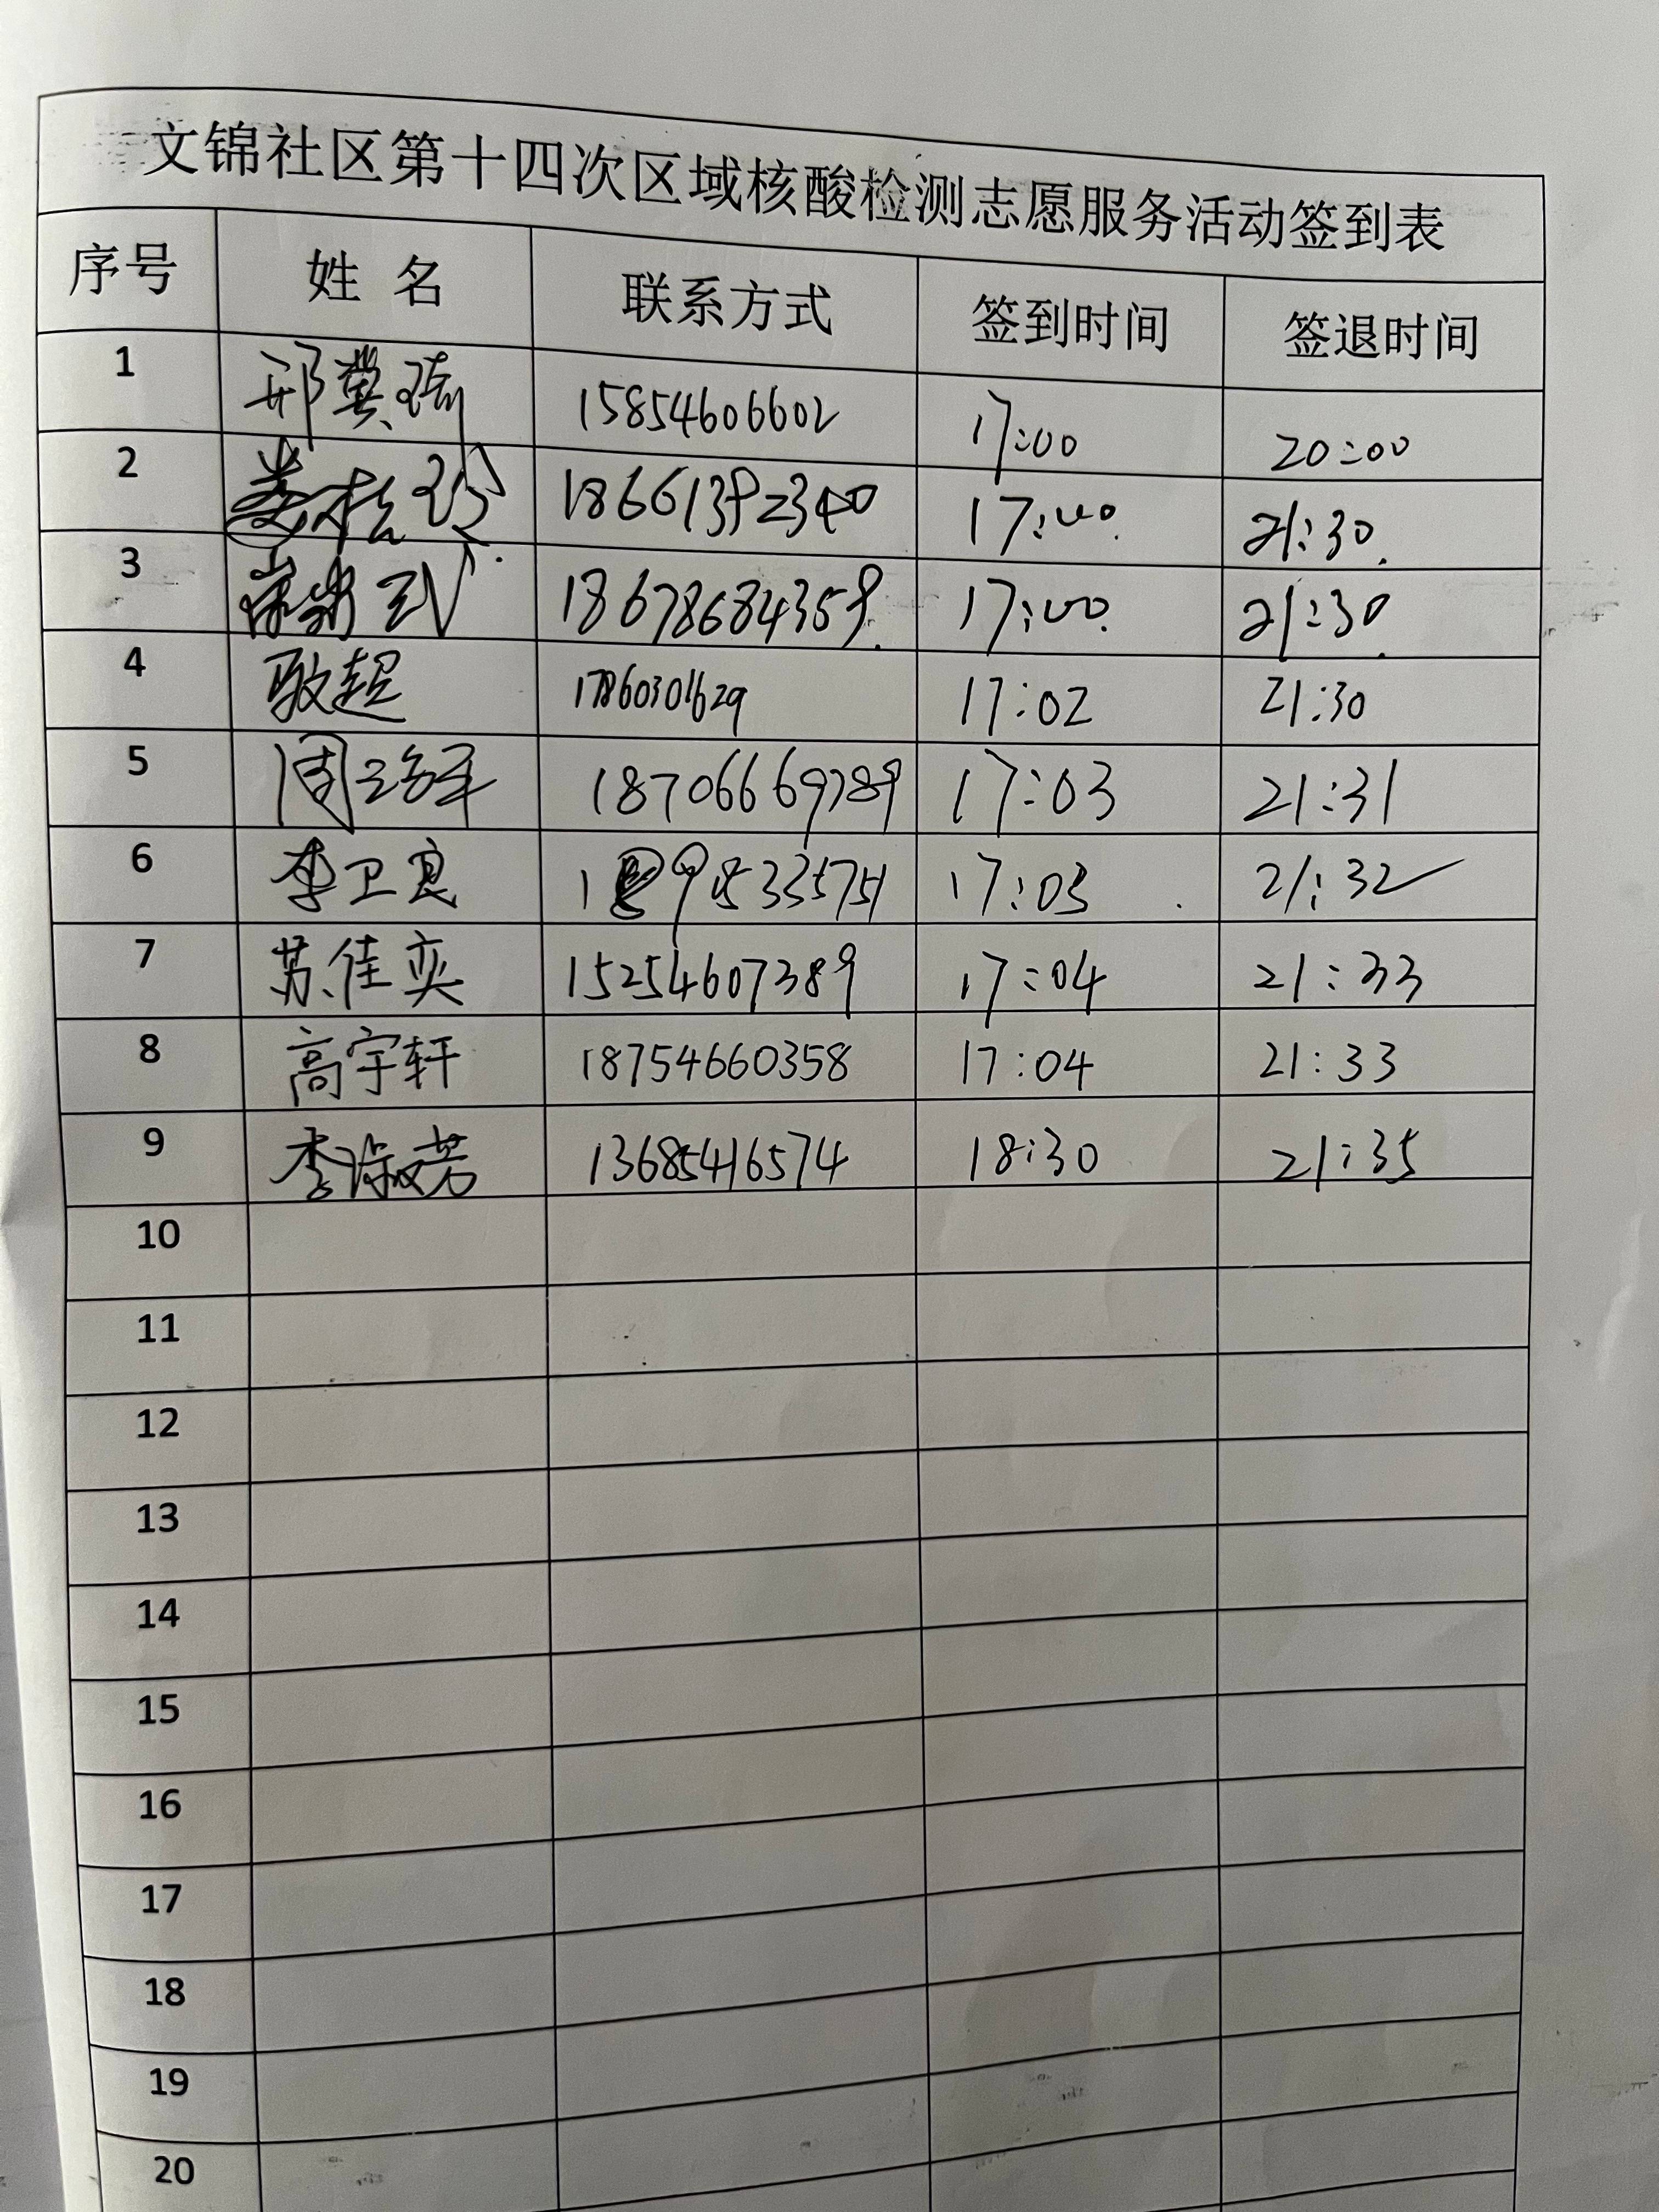 文锦社区第十四次区域核酸检测志愿服务活动签到表
序号 姓 名 联系方式 签到时间 签退时间
1 邢冀瑜 15854606602 17:00 20:00
2 18661392340 17:00 21:30
3 18678684359 17:00 21:30
4 耿超 17860301629 17:02 21:30
5 周 18706669789 17:03 21:31
6 李卫良 17:03 21:32
7 苏佳奕 15254607389 17:04 21:33
8 高宇轩 18754660358 17:04 21:33
9 李淑芳 13685416574 18:30 21:35
10
11
12
13
14
15
16
17
18
19
20